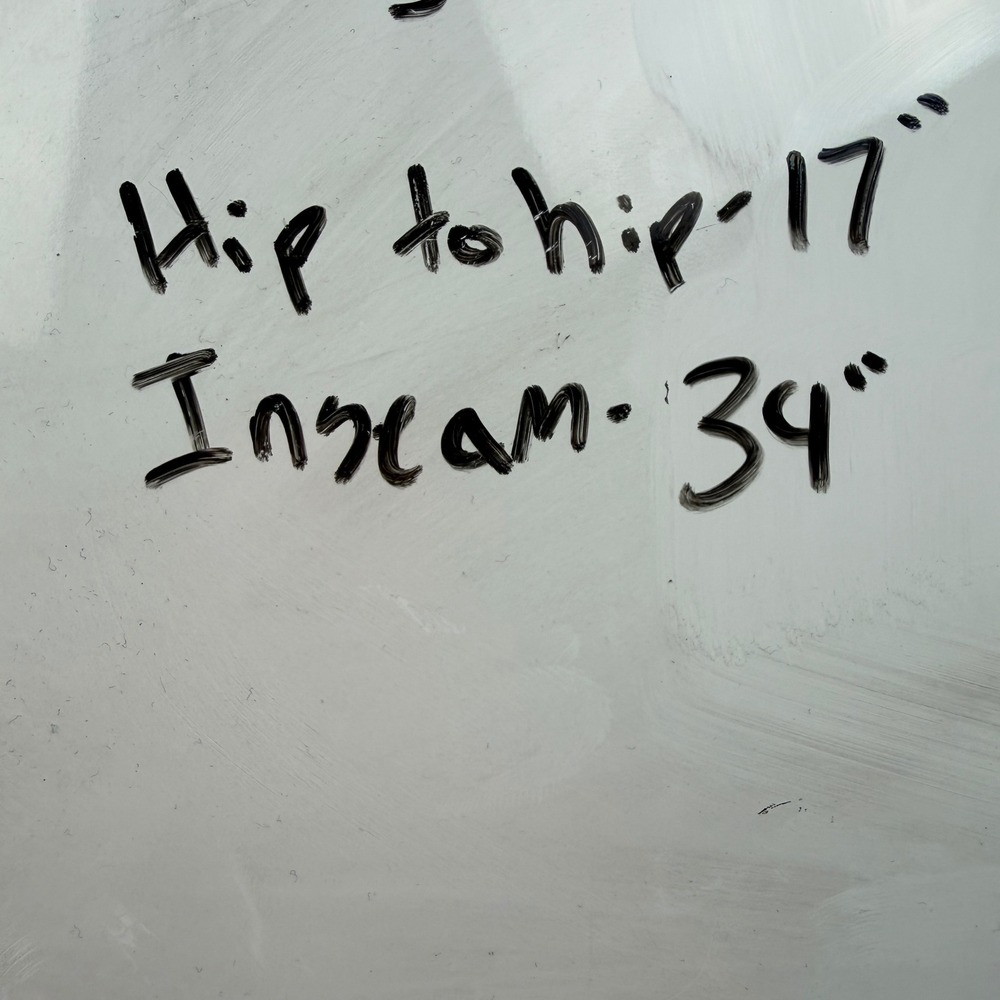 Hip to hip-17"
Inseam-34"